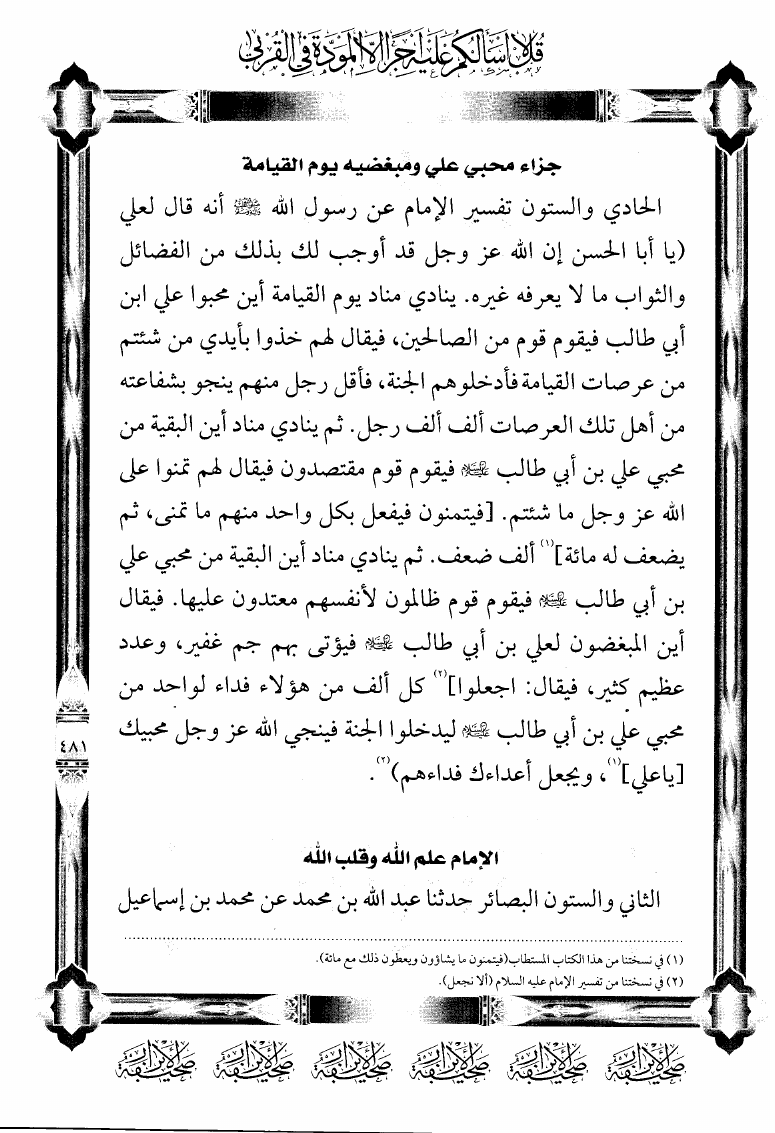 قل لا أسألكم عليه أجرا إلا المودة في القربى
جزاء محبي علي ومبغضيه يوم القيامة
الحادي والستون تفسير الإمام عن رسول الله ﷺ أنه قال لعلي
(يا أبا الحسن إن الله عز وجل قد أوجب لك بذلك من الفضائل
والثواب ما لا يعرفه غيره. ينادي مناد يوم القيامة أين محبوا علي ابن
أبي طالب فيقوم قوم من الصالحين، فيقال لهم خذوا بأيدي من شئتم
من عرصات القيامة فأدخلوهم الجنة، فأقل رجل منهم ينجو بشفاعته
من أهل تلك العرصات ألف ألف رجل. ثم ينادي مناد أين البقية من
محبي علي بن أبي طالب عليه السلام فيقوم قوم مقتصدون فيقال لهم تمنوا على
الله عز وجل ما شئتم. [فيتمنون فيفعل بكل واحد منهم ما تمنى، ثم
يضعف له مائة](١) ألف ضعف. ثم ينادي مناد أين البقية من محبي علي
بن أبي طالب عليه السلام فيقوم قوم ظالمون لأنفسهم معتدون عليها. فيقال
أين المبغضون لعلي بن أبي طالب عليه السلام فيؤتى بهم جم غفير، وعدد
عظيم كثير، فيقال: اجعلوا](٢) كل ألف من هؤلاء فداء لواحد من
محبي علي بن أبي طالب عليه السلام ليدخلوا الجنة فينجي الله عز وجل محبيك
[ياعلي](١)، ويجعل أعداءك فداءهم)(٢).
٤٨١
الإمام علم الله وقلب الله
الثاني والستون البصائر حدثنا عبد الله بن محمد عن محمد بن إسماعيل
(١) في نسختنا من هذا الكتاب المستطاب(فيتمنون ما يشاؤون ويعطون ذلك مع مائة).
(٢) في نسختنا من تفسير الإمام عليه السلام (ألا نجعل).